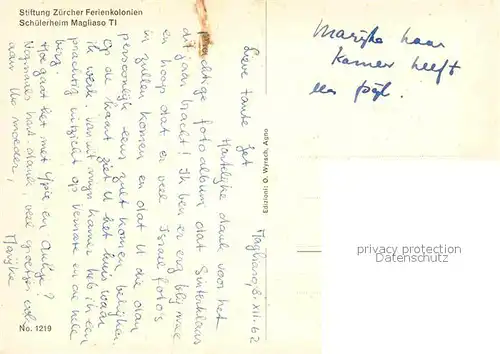 Stiftung Zürcher Ferienkolonien
Schülerheim Magliaso TI
Magliaso, 8. XII. 62
Lieve tante Jet
Hartelijke dank voor het
prachtige fotoalbum dat Sinterklaas
dit jaar bracht! Ik ben er erg blij mee
en hoop dat er veel Israel foto's
in zullen komen en dat U die dan
persoonlijk eens zult komen bekijken
Op de kaart ziet U het huis waar
ik werk. Van uit mijn kamer heb ik een
prachtig uitzicht op Lernate en de hele
berg.
Hoe gaat het met Ypie en Antje?
Nogmaals hart. dank, veel groetjes ook
aan Uw moeder,
Marijke
No. 1219
Edizioni: O. Wyrsch, Agno
Marijke haar
kamer heeft
een pijl.
copyright protected
PHILASEARCH.COM